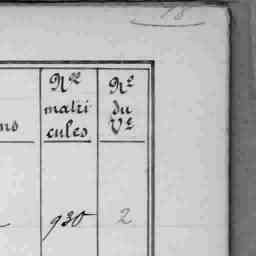 18
Nos matri cules
No du Ve
ns
930
2